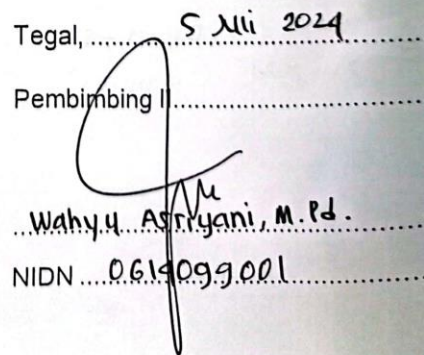 Tegal, 5 Juli 2024
Pembimbing II
Wahyu Asriyani, M.Pd.
NIDN 0614099001